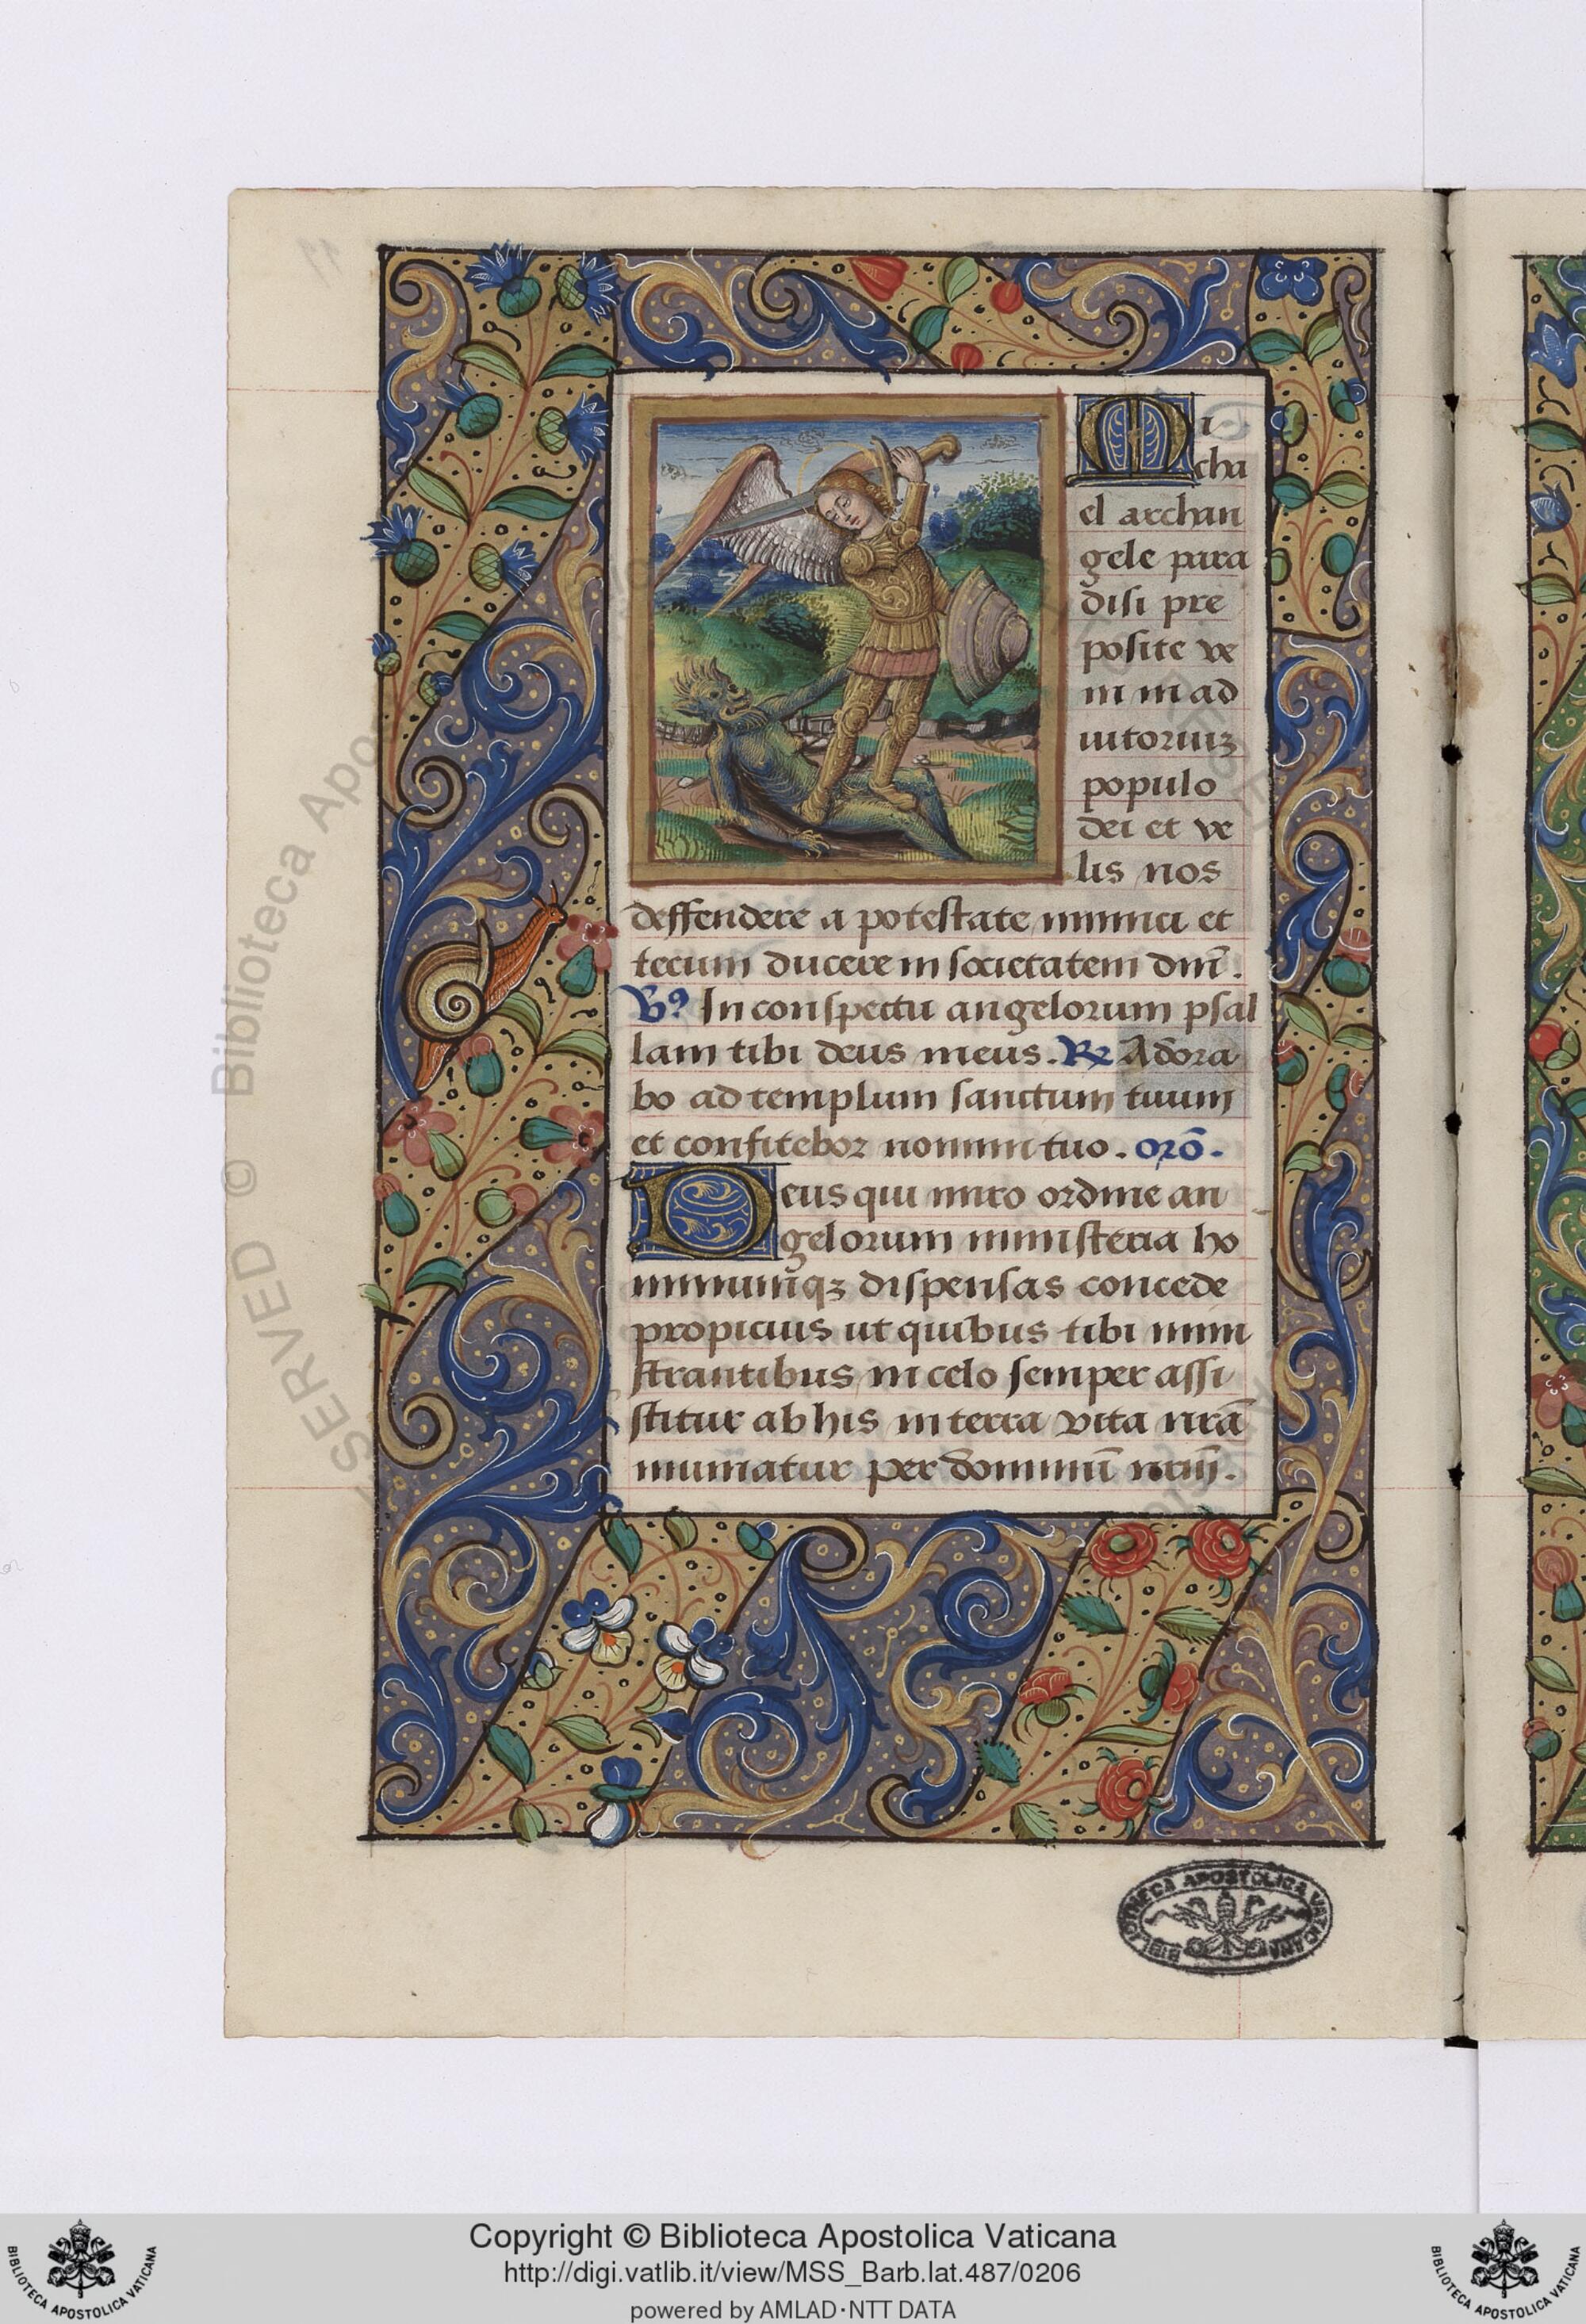 Mi
cha
el archan
gele para
disi pre
posite ve
ni in ad
iutoriuꝫ
populo
dei et ve
lis nos
deffendere a potestate inimici et
tecum ducere in societatem dnĩ.
Vꝰ In conspectu angelorum psal
lam tibi deus meus. ℟ Adora
bo ad templum sanctum tuum
et confitebor nomini tuo. orõ.
Deus qui miro ordine an
gelorum ministeria ho
minumqꝫ dispensas concede
propicius ut quibus tibi mini
strantibus in celo semper assi
stitur ab his in terra vita nrã
muniatur per dominũ nrm̃.
BIBLIOTHECA APOSTOLICA VATICANA
SERVED © Biblioteca Apos
Copyright © Biblioteca Apostolica Vaticana
http://digi.vatlib.it/view/MSS_Barb.lat.487/0206
powered by AMLAD·NTT DATA
BIBLIOTECA APOSTOLICA VATICANA
BIBLIOTECA APOSTOLICA VATICANA